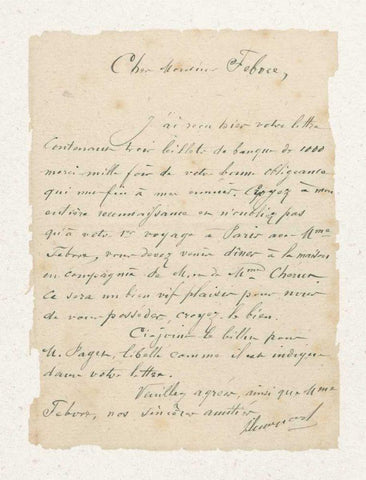 Cher Monsieur Febvre,
J'ai reçu hier votre lettre
contenant trois billets de banque de 1000
merci mille fois de votre bonne obligeance
qui met fin à mes ennuis. Croyez à mon
entière reconnaissance et n'oubliez pas
qu'à votre 1er voyage à Paris avec Mme
Febvre, vous devez venir dîner à la maison
en compagnie de M. et de Mme
ce sera un bien vif plaisir pour nous
de vous posséder, croyez le bien.
Ci-joint le billet pour
M. Paget, libellé comme il est indiqué
dans votre lettre.
Veuillez agréer, ainsi que Mme
Febvre, nos sincères amitiés